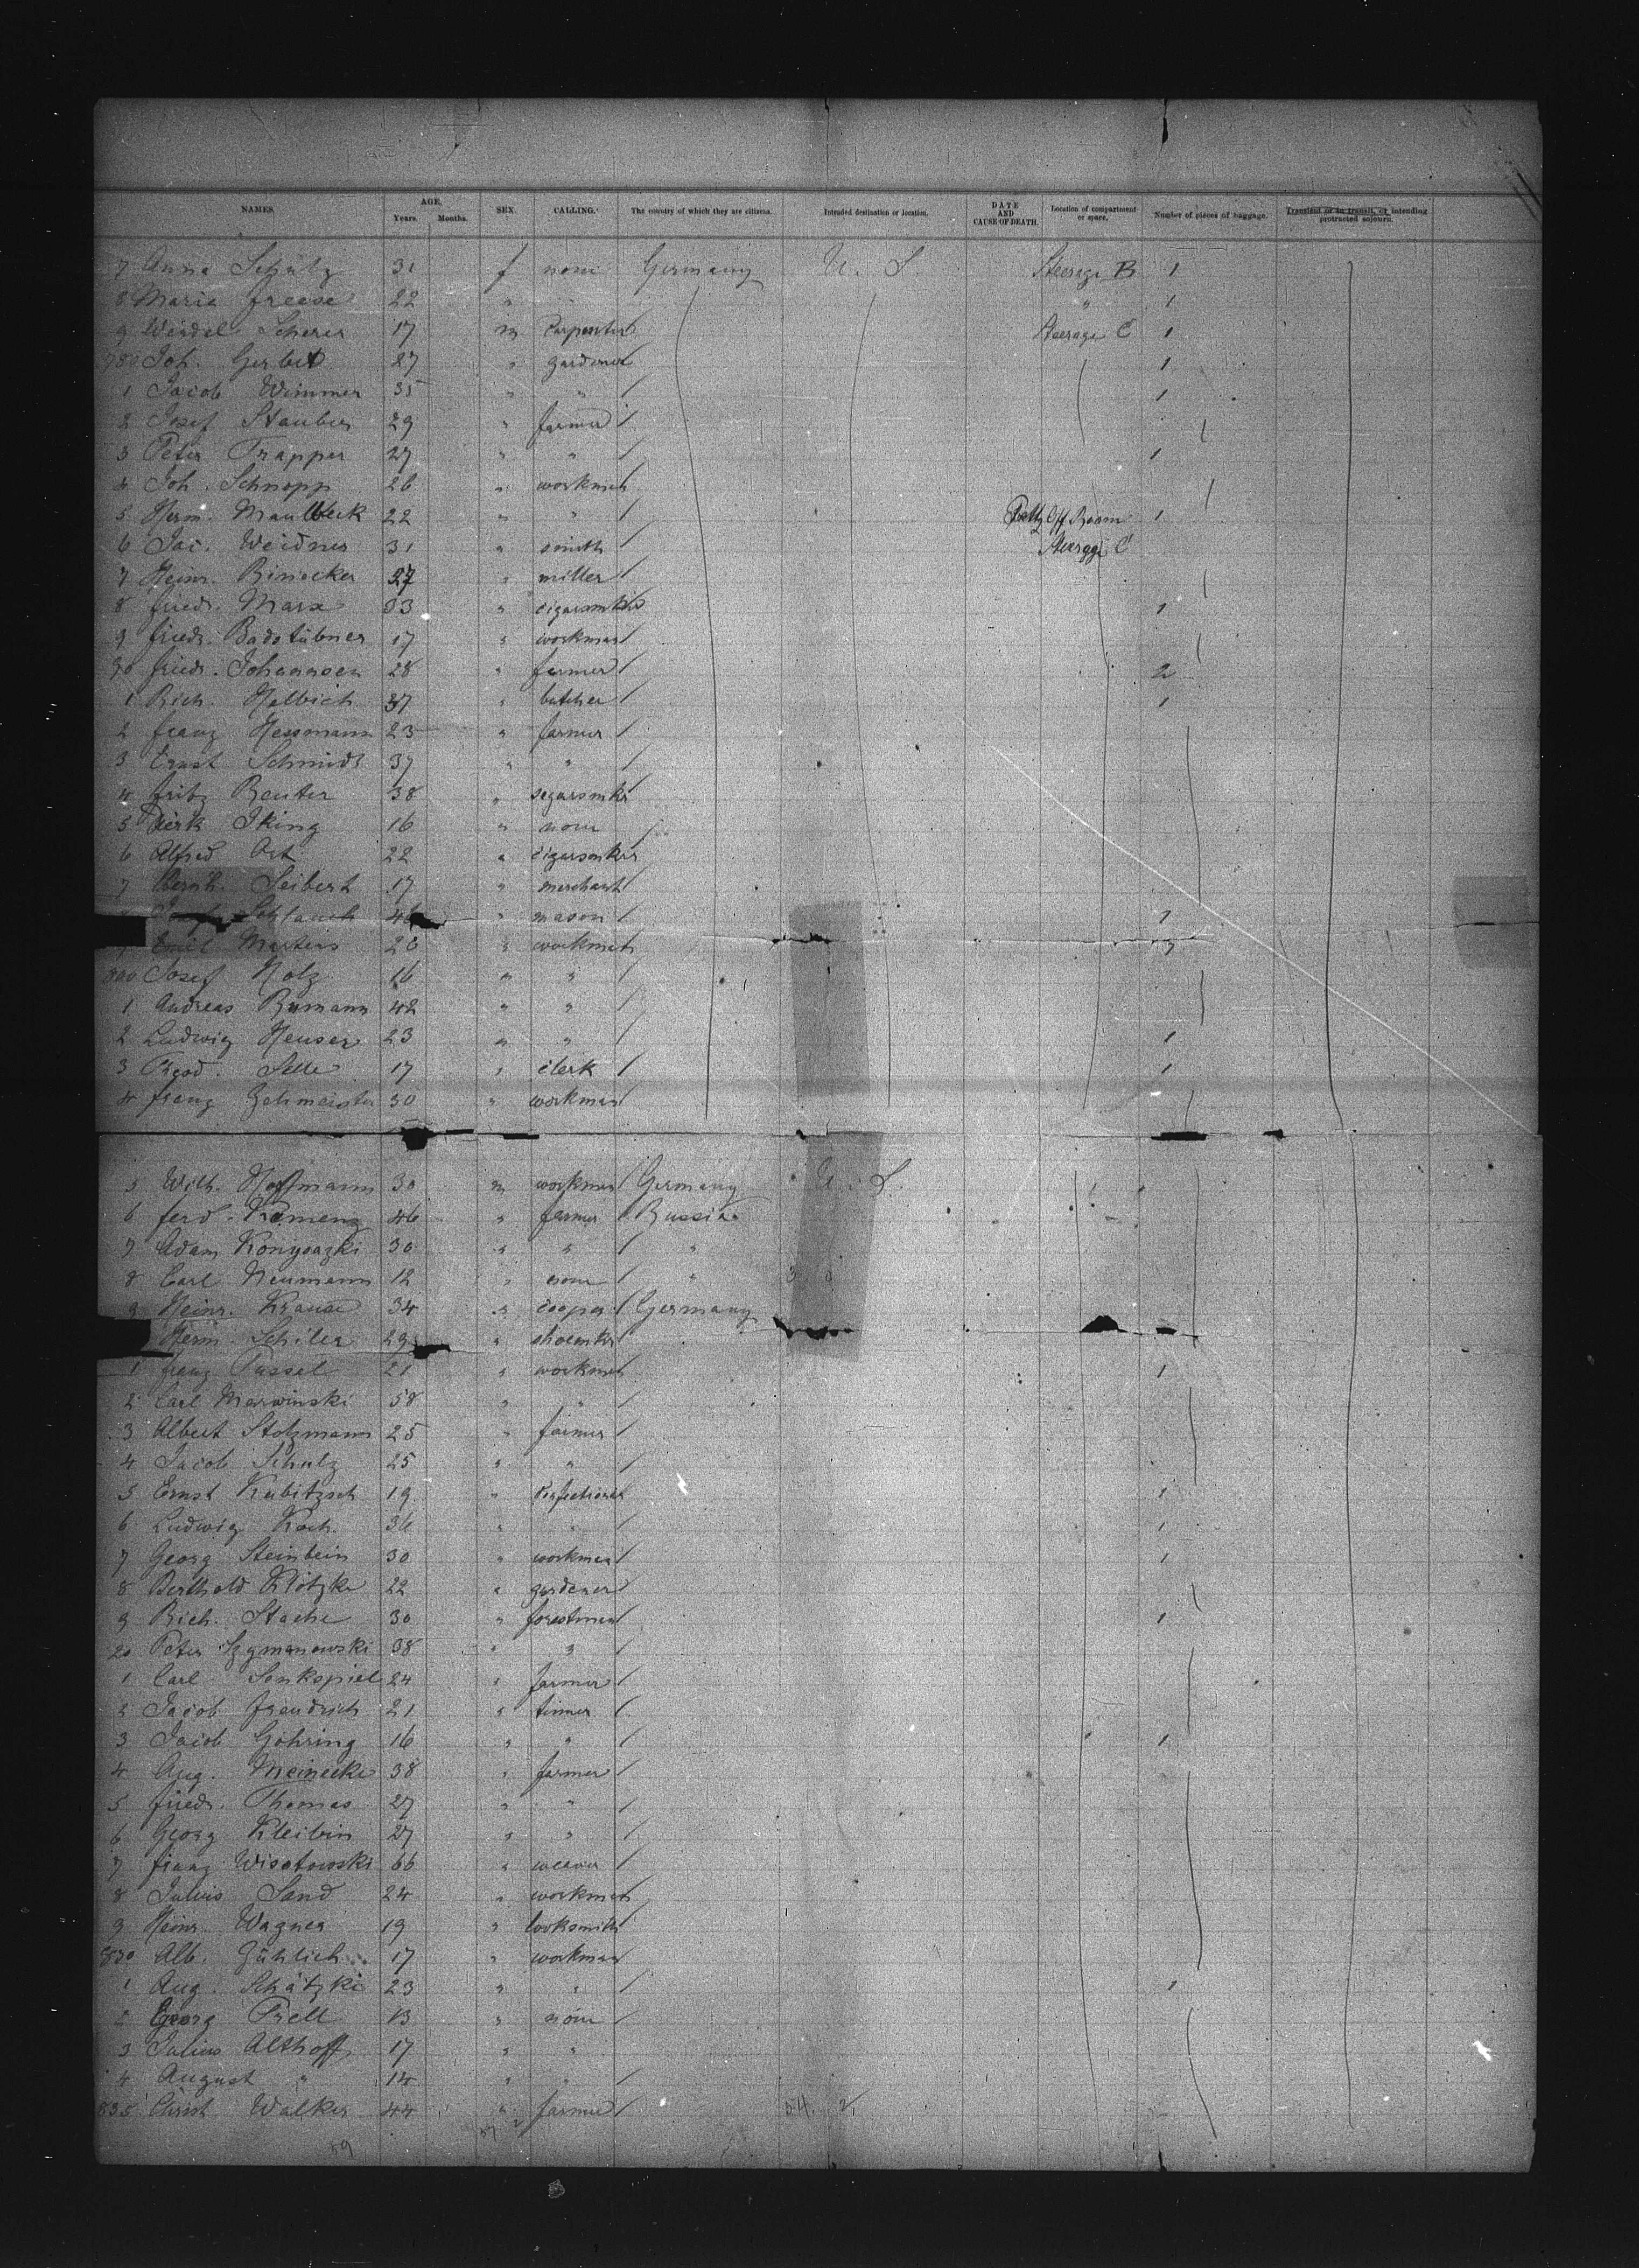 NAMES. AGE. Years. Months. SEX. CALLING. The country of which they are citizens. Intended destination or location. DATE AND CAUSE OF DEATH. Location of compartment or space. Number of pieces of baggage. Transient or in transit, or intending protracted sojourn.
7 Anna Schulz 31 f none Germany U. S. Steerage B 1
8 Maria Freese 22 " " " 1
9 Weidel Scherer 17 m carpenter Steerage C 1
780 Joh. Gerbet 27 " gardener 1
1 Jacob Wimmer 35 " " 1
2 Josef Stauber 29 " farmer
3 Peter Trapper 27 " " 1
4 Joh. Schnopp 26 " workman
5 Herm. Maulbeck 22 " " Petty Off Room 1
6 Jac. Weidner 31 " smith Steerage C
7 Heinr. 27 " miller
8 Friedr. Marx 33 " cigarsmker 1
9 Friedr. Badstübner 17 " workman
90 Friedr. Johannsen 28 " farmer 2
1 Rich. Helbich 37 " butcher 1
2 Franz Hessmann 23 " farmer
3 Ernst Schmidt 37 " "
4 Fritz Reuter 38 " segarsmker
5 Dierk Iking 16 " none
6 Alfred Ort 22 " cigarsmker
7 Bernh. Seibert 17 " merchant
Schlauch 46 " mason 1
9 Emil Martens 26 " workman
800 Josef Holz 16 " "
1 Andreas Rumann 42 " "
2 Ludwig Heuser 23 " " 1
3 Selle 17 " clerk 1
4 Franz 30 " workman
5 Wilh. Hoffmann 30 m workman Germany U. S.
6 Ferd. Kremenz 46 " farmer Russia
7 Adam 30 " " "
8 Carl Neumann 12 " none "
9 Heinr. Krause 34 " cooper Germany
Herm. Schiler 29 " shoemker
1 Franz Passel 21 " workman 1
2 Carl Marwinski 58 " "
3 Albert Stolzmann 25 " farmer
4 Jacob Schulz 25 " "
5 Ernst Kubitzsch 19 " confectioner 1
6 Ludwig Koch 36 " " 1
7 Georg Steinbein 30 " workman 1
8 Berthold Klötzke 22 " gardener
9 Rich. Stache 30 " forestman 1
20 Peter Szymanowski 38 " "
1 Carl Senkspiel 24 " farmer
2 Jacob Freudrich 21 " tinner
3 Jacob Göhring 16 " " 1
4 Aug. Meinecke 38 " farmer
5 Friedr. Thomas 27 " "
6 Georg Kleibin 27 " "
7 Franz Wisotowski 66 " weaver
8 Julius Sand 24 " workman
9 Heinr. Wagner 19 " locksmith
830 Alb. Gühlich 17 " workman
1 Aug. Schätzki 23 " " 1
2 Georg Prell 13 " none
3 Julius Althoff 17 " "
4 August " 14 " "
835 Christ. Walker 44 " farmer
59